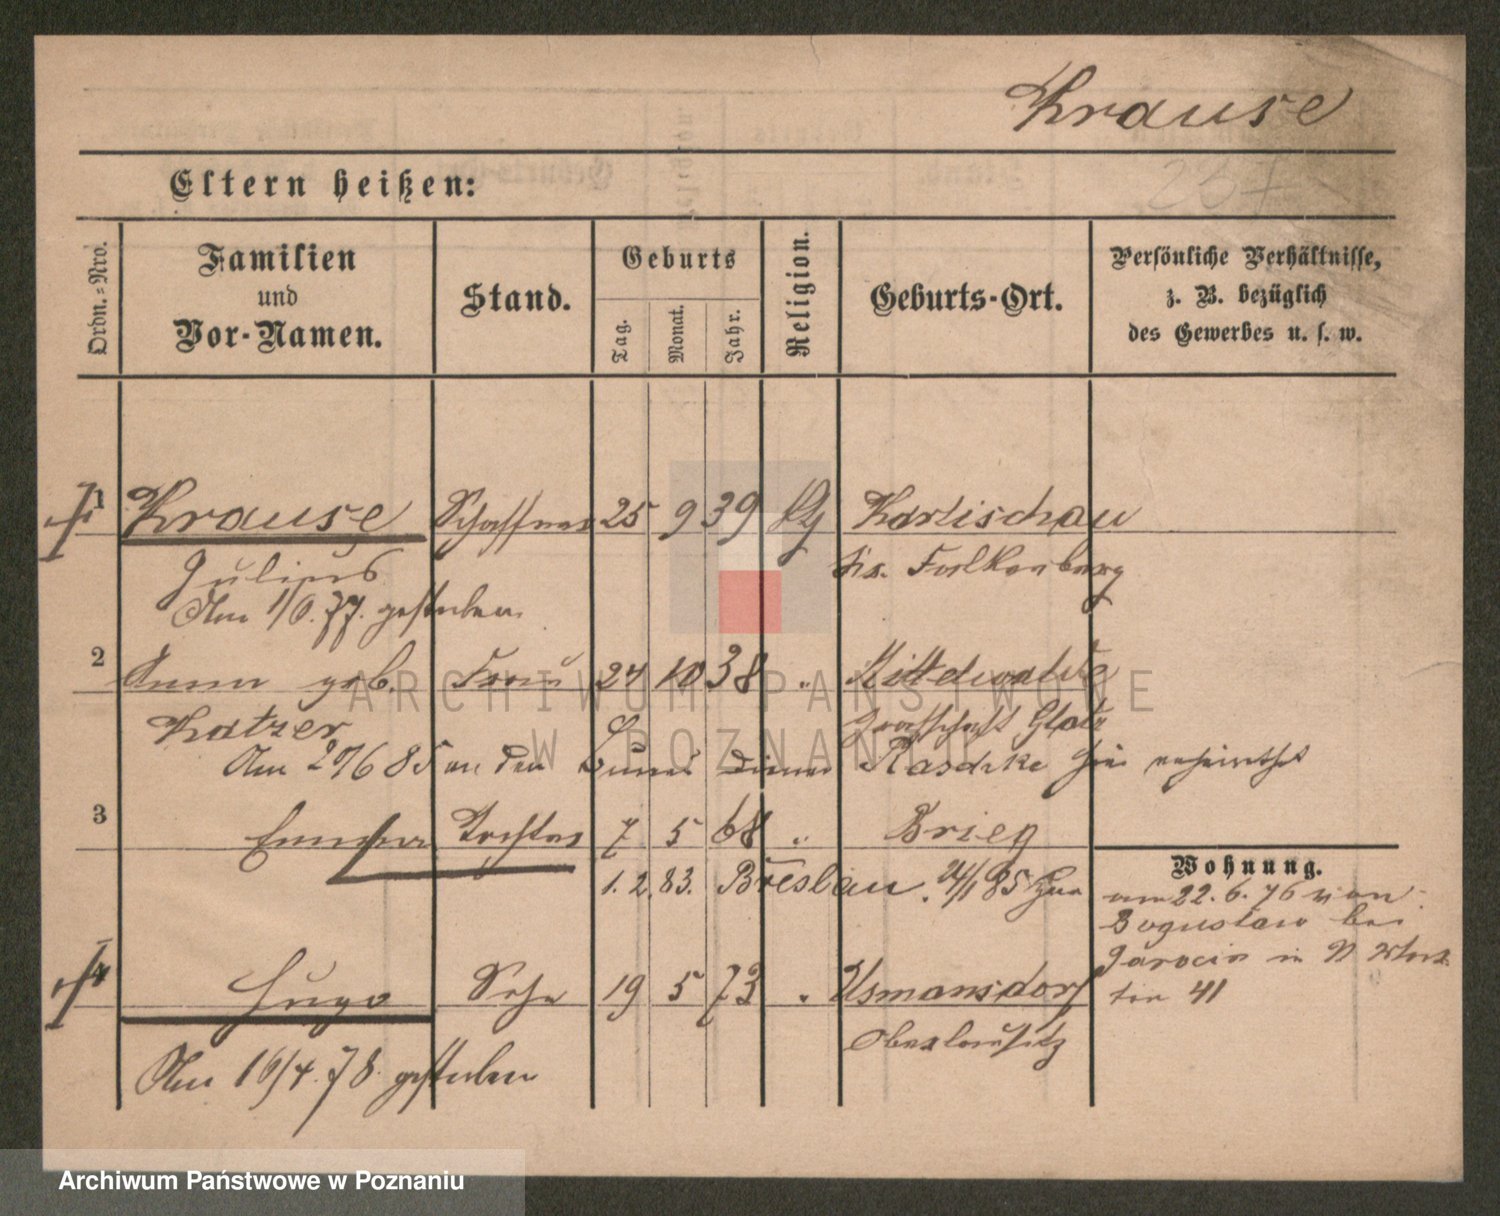 Krause
237
Eltern heißen:
Ordn.-Nro.
Familien
und
Vor-Namen.
Stand.
Geburts
Tag.
Monat.
Jahr.
Religion.
Geburts-Ort.
Persönliche Verhältnisse,
z. B. bezüglich
des Gewerbes u. s. w.
1 Krause Schaffner 25 9 39 Karlischau
Julius Kr. Falkenberg
Am 1/6.77. gestorben
2 Anna geb. Frau 24 10 38 " Mittelwalde
Katzer Grafschaft Glatz
Am 29/6 85 an den Diener Raschke hier verheirathet
3 Emma Tochter 7 5 68 " Brieg
1. 2. 83. Breslau. 24/1 85 Hier
Wohnung.
am 22. 6. 76 von
Boguslaw bei
Jarocin in
41
4 Hugo Sohn 19 5 73 " Usmansdorf
Oberlausitz
Am 16/4. 78. gestorben
ARCHIWUM PAŃSTWOWE
W POZNANIU
Archiwum Państwowe w Poznaniu